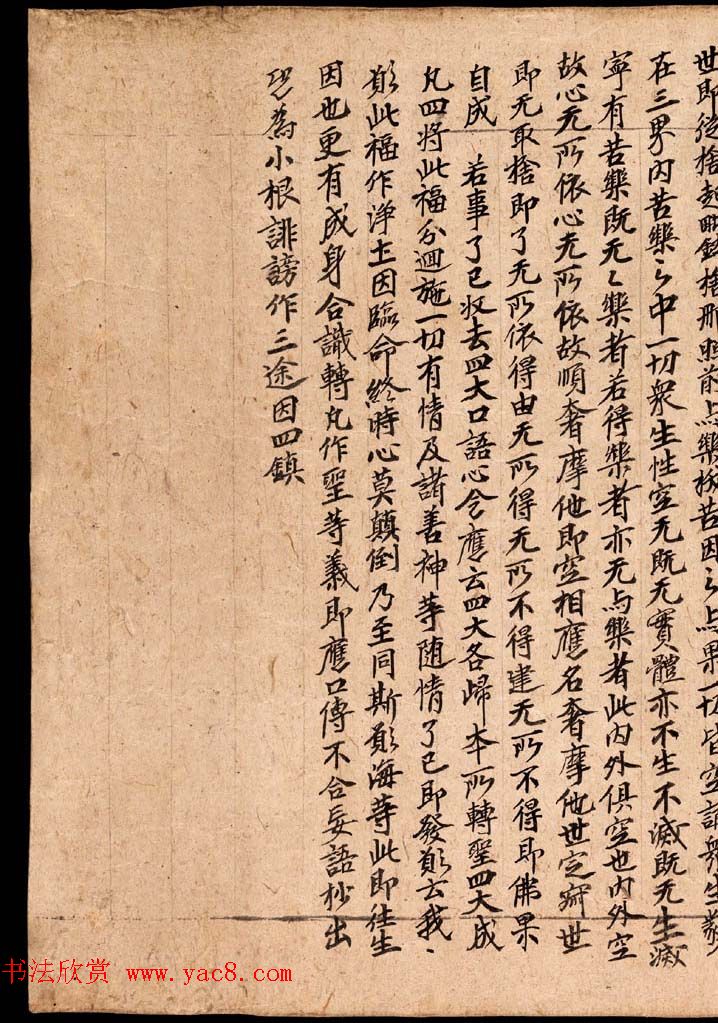 世即從捨起 捨那照前与樂拔苦因之与果一切皆空諸衆生
在三界内苦樂之中一切衆生性空无既无實體亦不生不滅既无生滅
寧有苦樂既无〻樂者若得樂者亦无与樂者此内外俱空也内外空
故心无所依心无所依故順奢摩他即空相應名奢摩他世定 世
即无取捨即了无所依得由无所得无所不得建无所不得即佛果
自成 若事了已收去四大口語心念應云四大各歸本所轉聖四大成
凡四將此福分迴施一切有情及諸善神等随情了已即發願云我〻
願此福作淨土因臨命終時心莫顛倒乃至同斯願海等此即往生
因也更有成身合識轉凡作聖等義即應口傳不合妄語抄出
恐為小根誹謗作三途因四鎮
书法欣赏 www.yac8.com